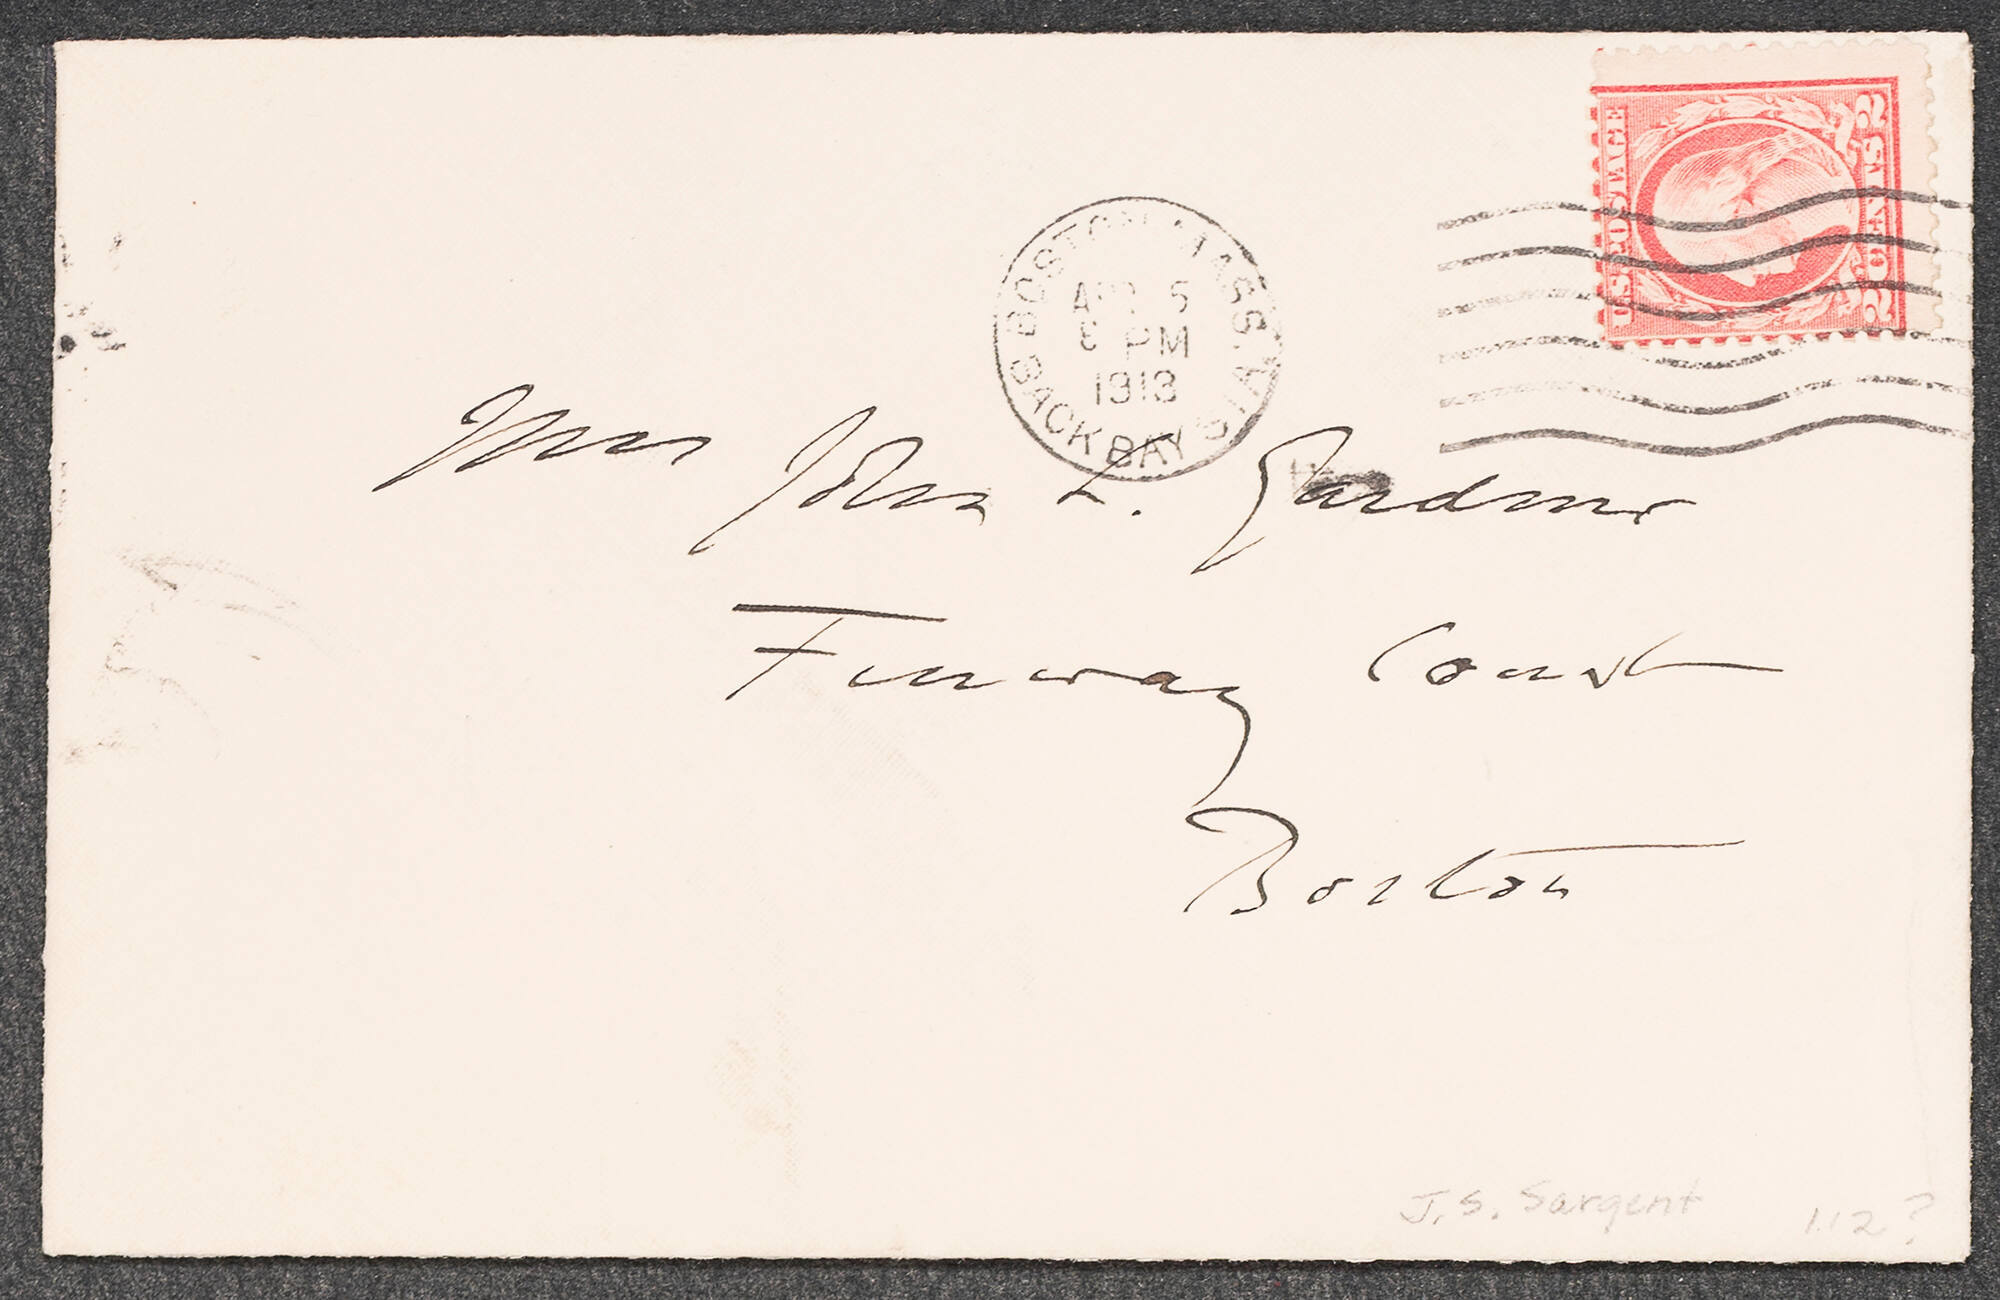 U.S. POSTAGE
2 CENTS 2
BOSTON, MASS.
APR 5
PM
1913
BACK BAY STA.
Mrs John L. Gardner
Fenway Court
Boston
J. S. Sargent 1.12?